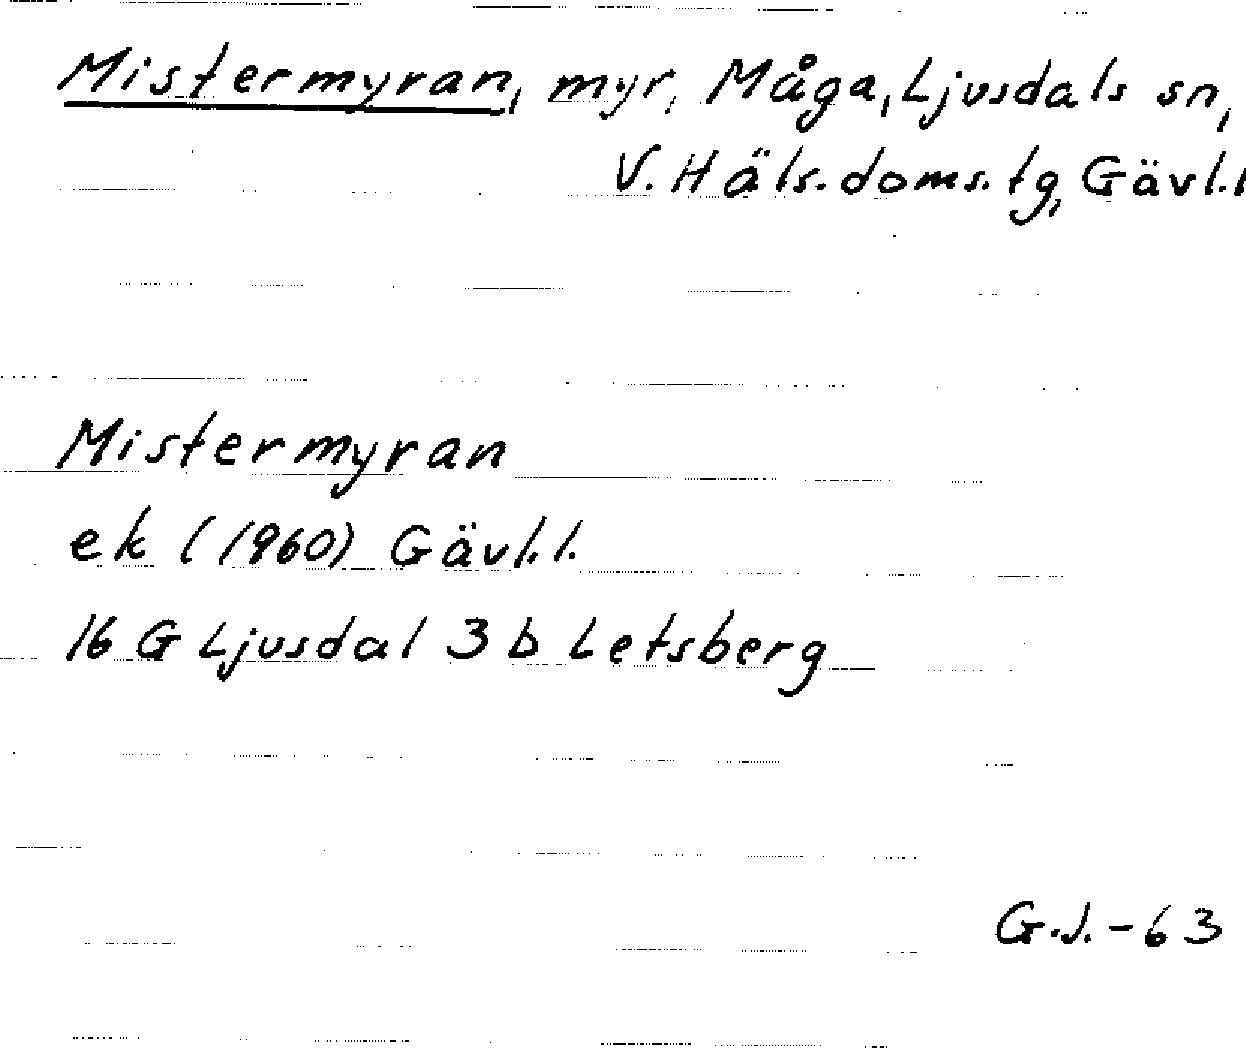 Mistermyran, myr, Måga, Ljusdals sn,
V. Häls. doms. tg, Gävl.l
Mistermyran
ek (1960) Gävl.l.
16 G Ljusdal 3 b Letsberg
G.J.-63